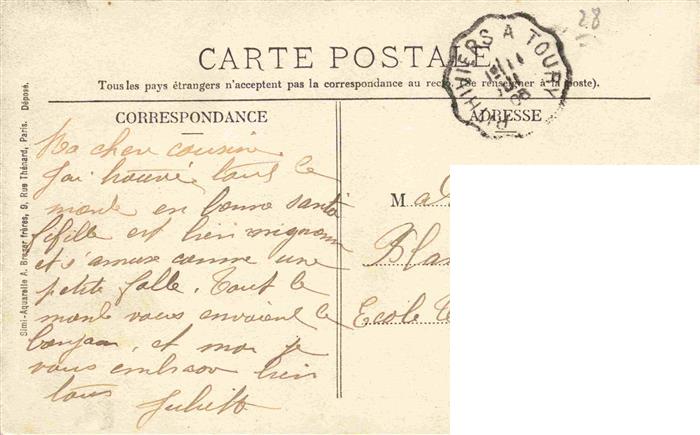 28
CARTE POSTALE
PITHIVIERS A TOURY
Tous les pays étrangers n'acceptent pas la correspondance au recto. (Se renseigner à la poste).
CORRESPONDANCE
ADRESSE
Ma chere cousine
J'ai trouvé tout le
monde en bonne santé
fifille est bien mignonne
et s'amuse comme une
petite folle. Tout le
monde vous envoient le
bonjour, et moi je
vous embrasse bien
tous
Juliette
Simi-Aquarelle A. Breger frères, 9, Rue Thénard, Paris. Déposé.
M
Ecole